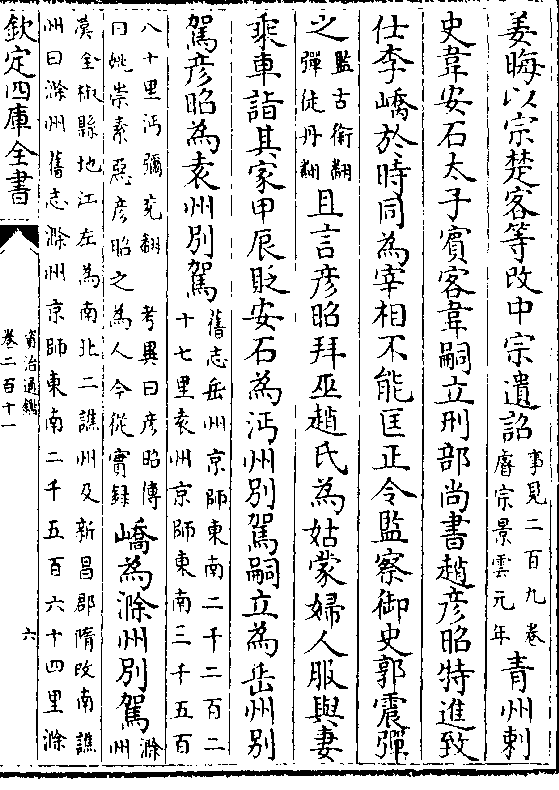 姜晦以宗楚客等改中宗遺詔事見二百九卷睿宗景雲元年青州刺
史韋安石太子賓客韋嗣立刑部尚書趙彦昭特進致
仕李嶠於時同為宰相不能匡正令監察御史郭震彈
之監古銜翻彈徒丹翻且言彦昭拜巫趙氏為姑蒙婦人服與妻
乘車詣其家甲辰貶安石為沔州別駕嗣立為岳州別
駕彦昭為袁州別駕舊志岳州京師東南二千二百二十七里袁州京師東南三千五百
八十里沔彌兖翻考異曰彦昭傳曰姚崇素惡彦昭之為人今從實録嶠為滁州別駕滁州
漢全椒縣地江左為南北二譙州及新昌郡隋改南譙州曰滁州舊志滁州京師東南二千五百六十四里滁
欽定四庫全書
資治通鑑
卷二百十一
六